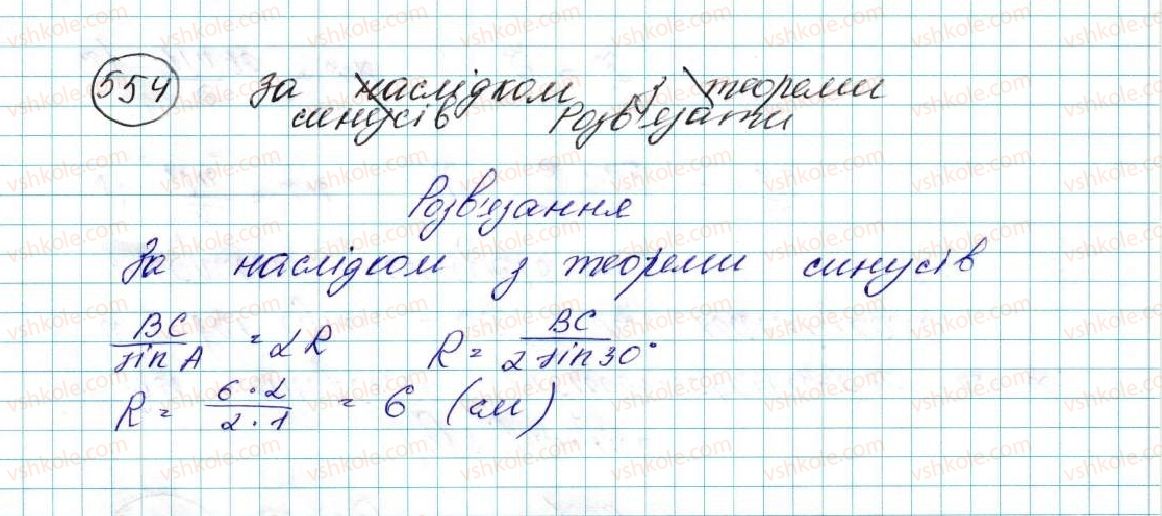 554 За наслідком з теореми
синусів Розв'язати
Розв'язання
За наслідком з теореми синусів
BC/sin A = 2R R = BC/2 sin 30°
R = 6·2/2·1 = 6 (см)